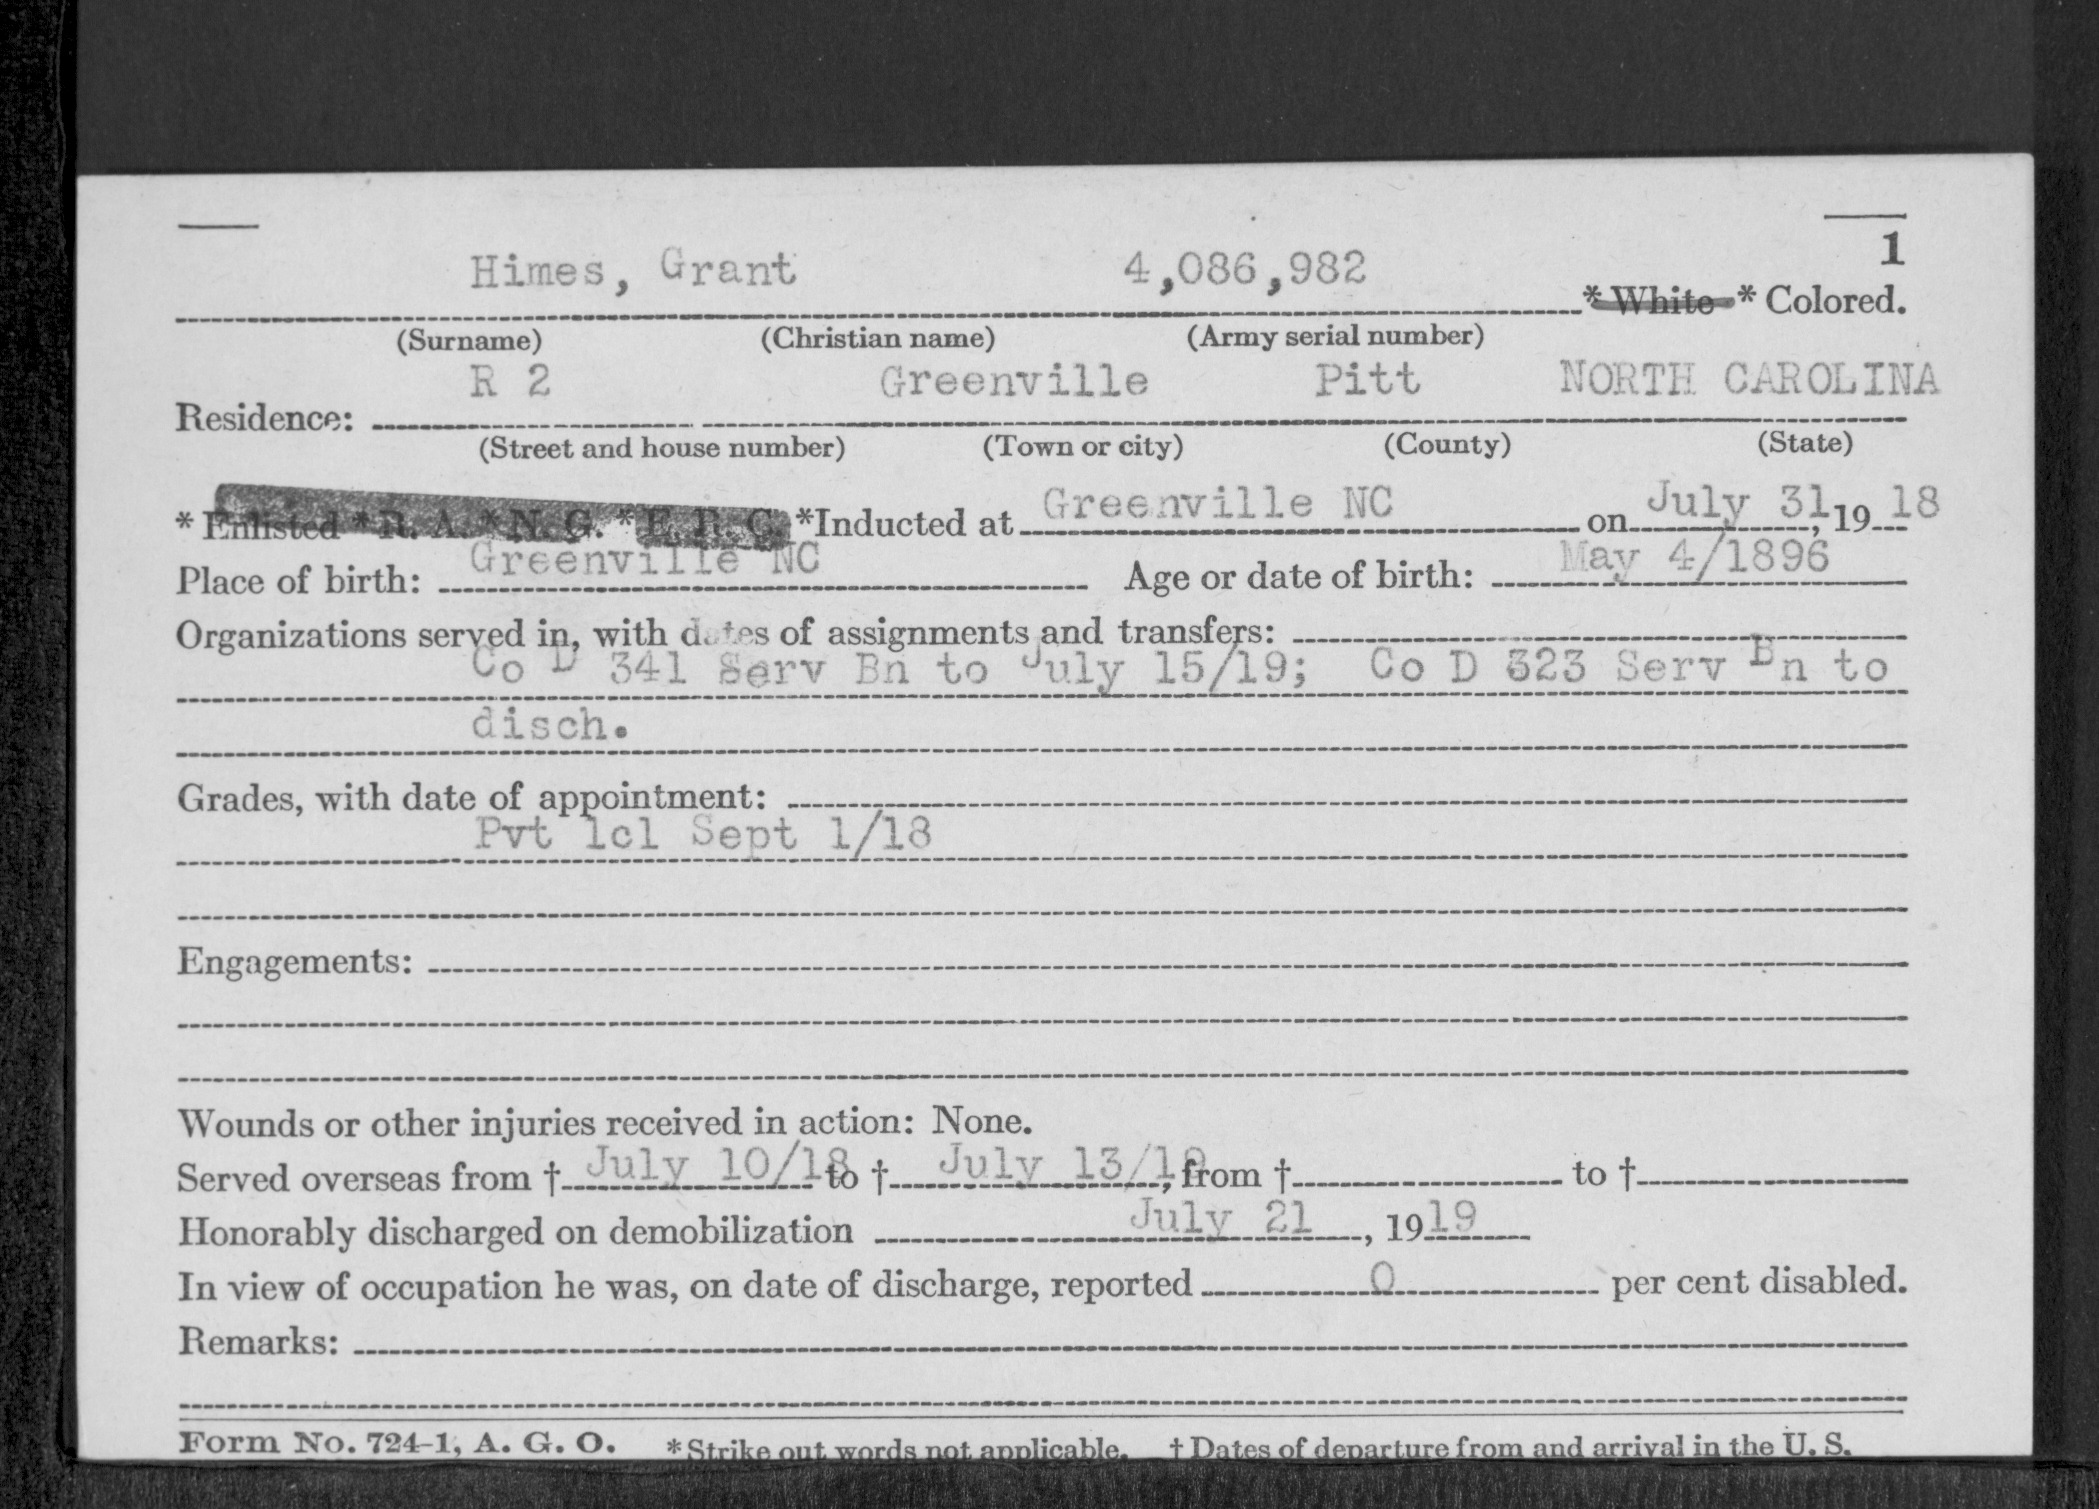 1
Himes, Grant 4,086,982 * White * Colored.
(Surname) (Christian name) (Army serial number)
R 2 Greenville Pitt NORTH CAROLINA
Residence:
(Street and house number) (Town or city) (County) (State)
* Enlisted * R. A. * N. G. * E. R. C. *Inducted at Greenville NC on July 31, 19 18
Place of birth: Greenville NC Age or date of birth: May 4/1896
Organizations served in, with dates of assignments and transfers:
Co D 341 Serv Bn to July 15/19; Co D 323 Serv Bn to
disch.
Grades, with date of appointment:
Pvt 1cl Sept 1/18
Engagements:
Wounds or other injuries received in action: None.
Served overseas from † July 10/18 to † July 13/19, from † to †
Honorably discharged on demobilization July 21, 19 19
In view of occupation he was, on date of discharge, reported 0 per cent disabled.
Remarks:
Form No. 724-1, A. G. O. * Strike out words not applicable. † Dates of departure from and arrival in the U. S.